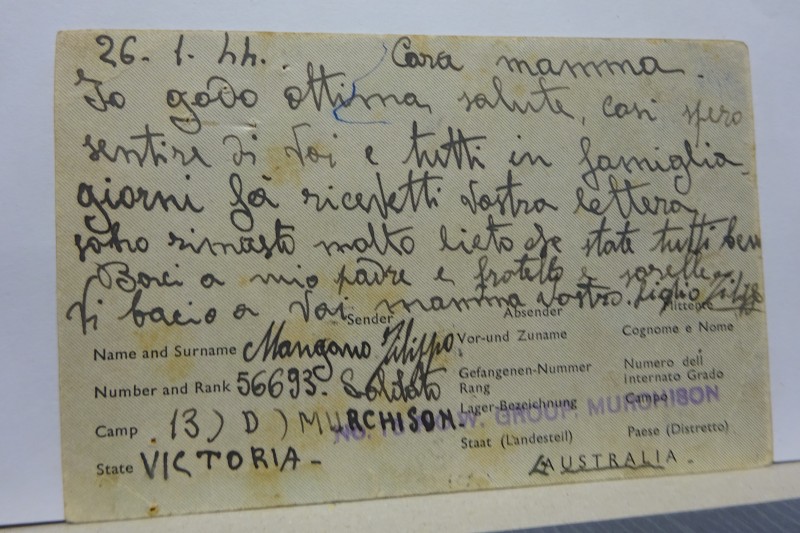 26. 1. 44. Cara mamma.
Io godo ottima salute, così spero
sentire di Voi e tutti in famiglia
giorni fà ricevetti Vostra lettera
sono rimasto molto lieto che state tutti bene
Baci a mio padre e fratello e sorelle
Vi bacio a Voi mamma vostro figlio Filippo
Sender Absender Mittente
Name and Surname Mangano Filippo. Vor-und Zuname Cognome e Nome
Number and Rank 56693. Soldato Gefangenen-Nummer Rang Numero dell Internato Grado
Camp 13) D) MURCHISON. Lager-Bezeichnung Campo
GROUP, MURCHISON
State VICTORIA - Staat (Landesteil) Paese (Distretto)
AUSTRALIA -